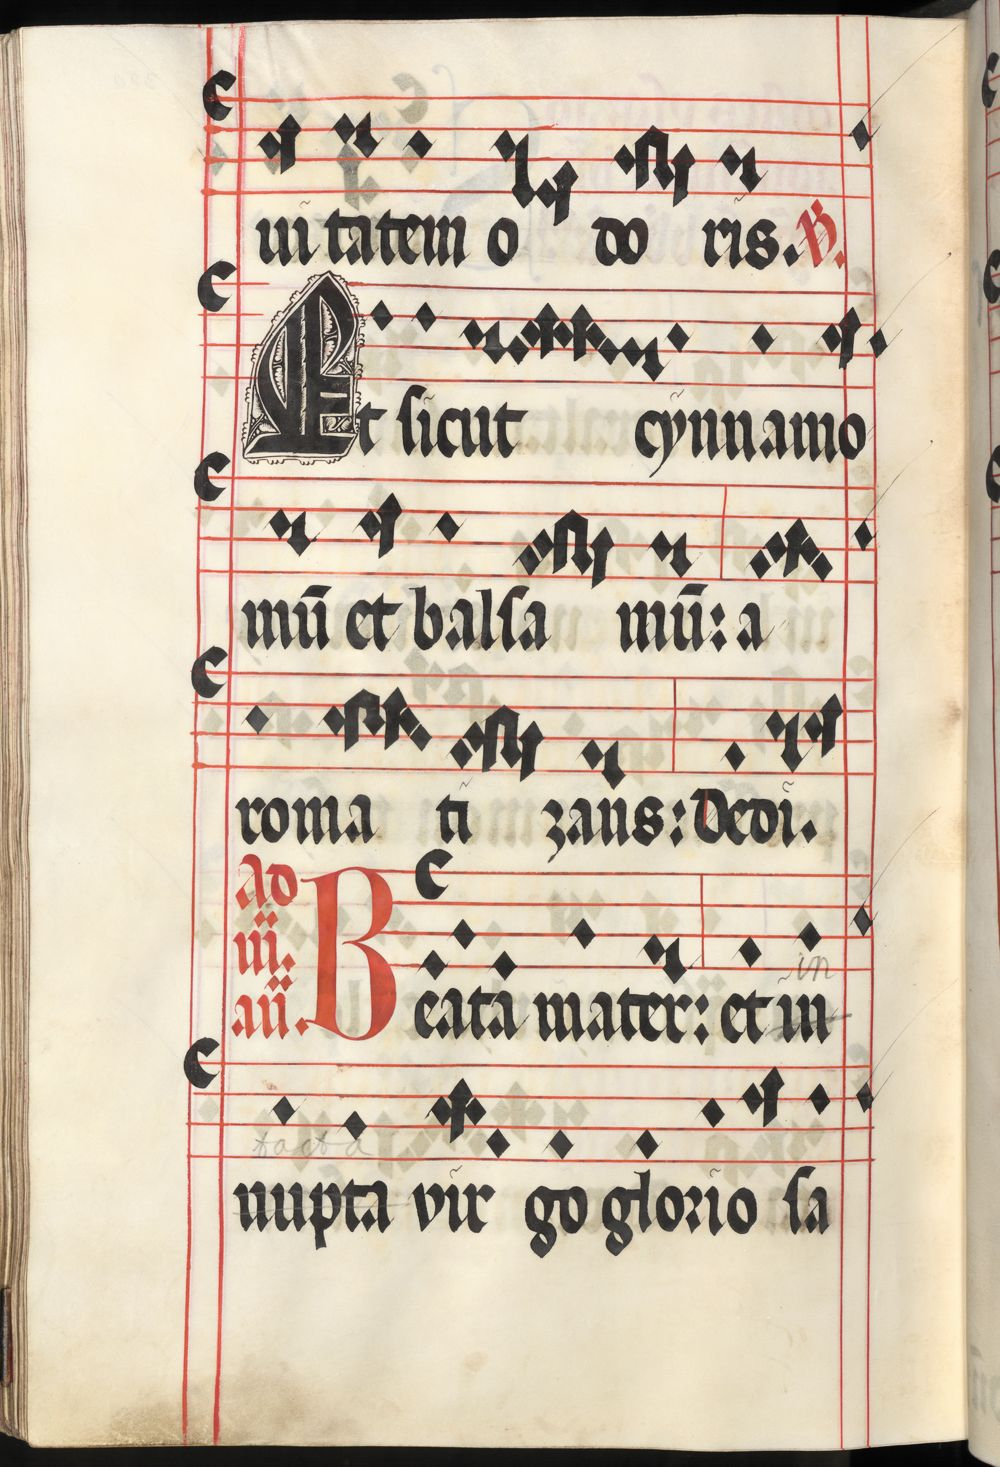 ui tatem o do ris. V.
Et sicut cynnamo
mū et balsa mū: a
roma ti zans: Dedi.
Ad iii. añ. Beata mater: et in
in
tacta
nupta vir go glorio sa